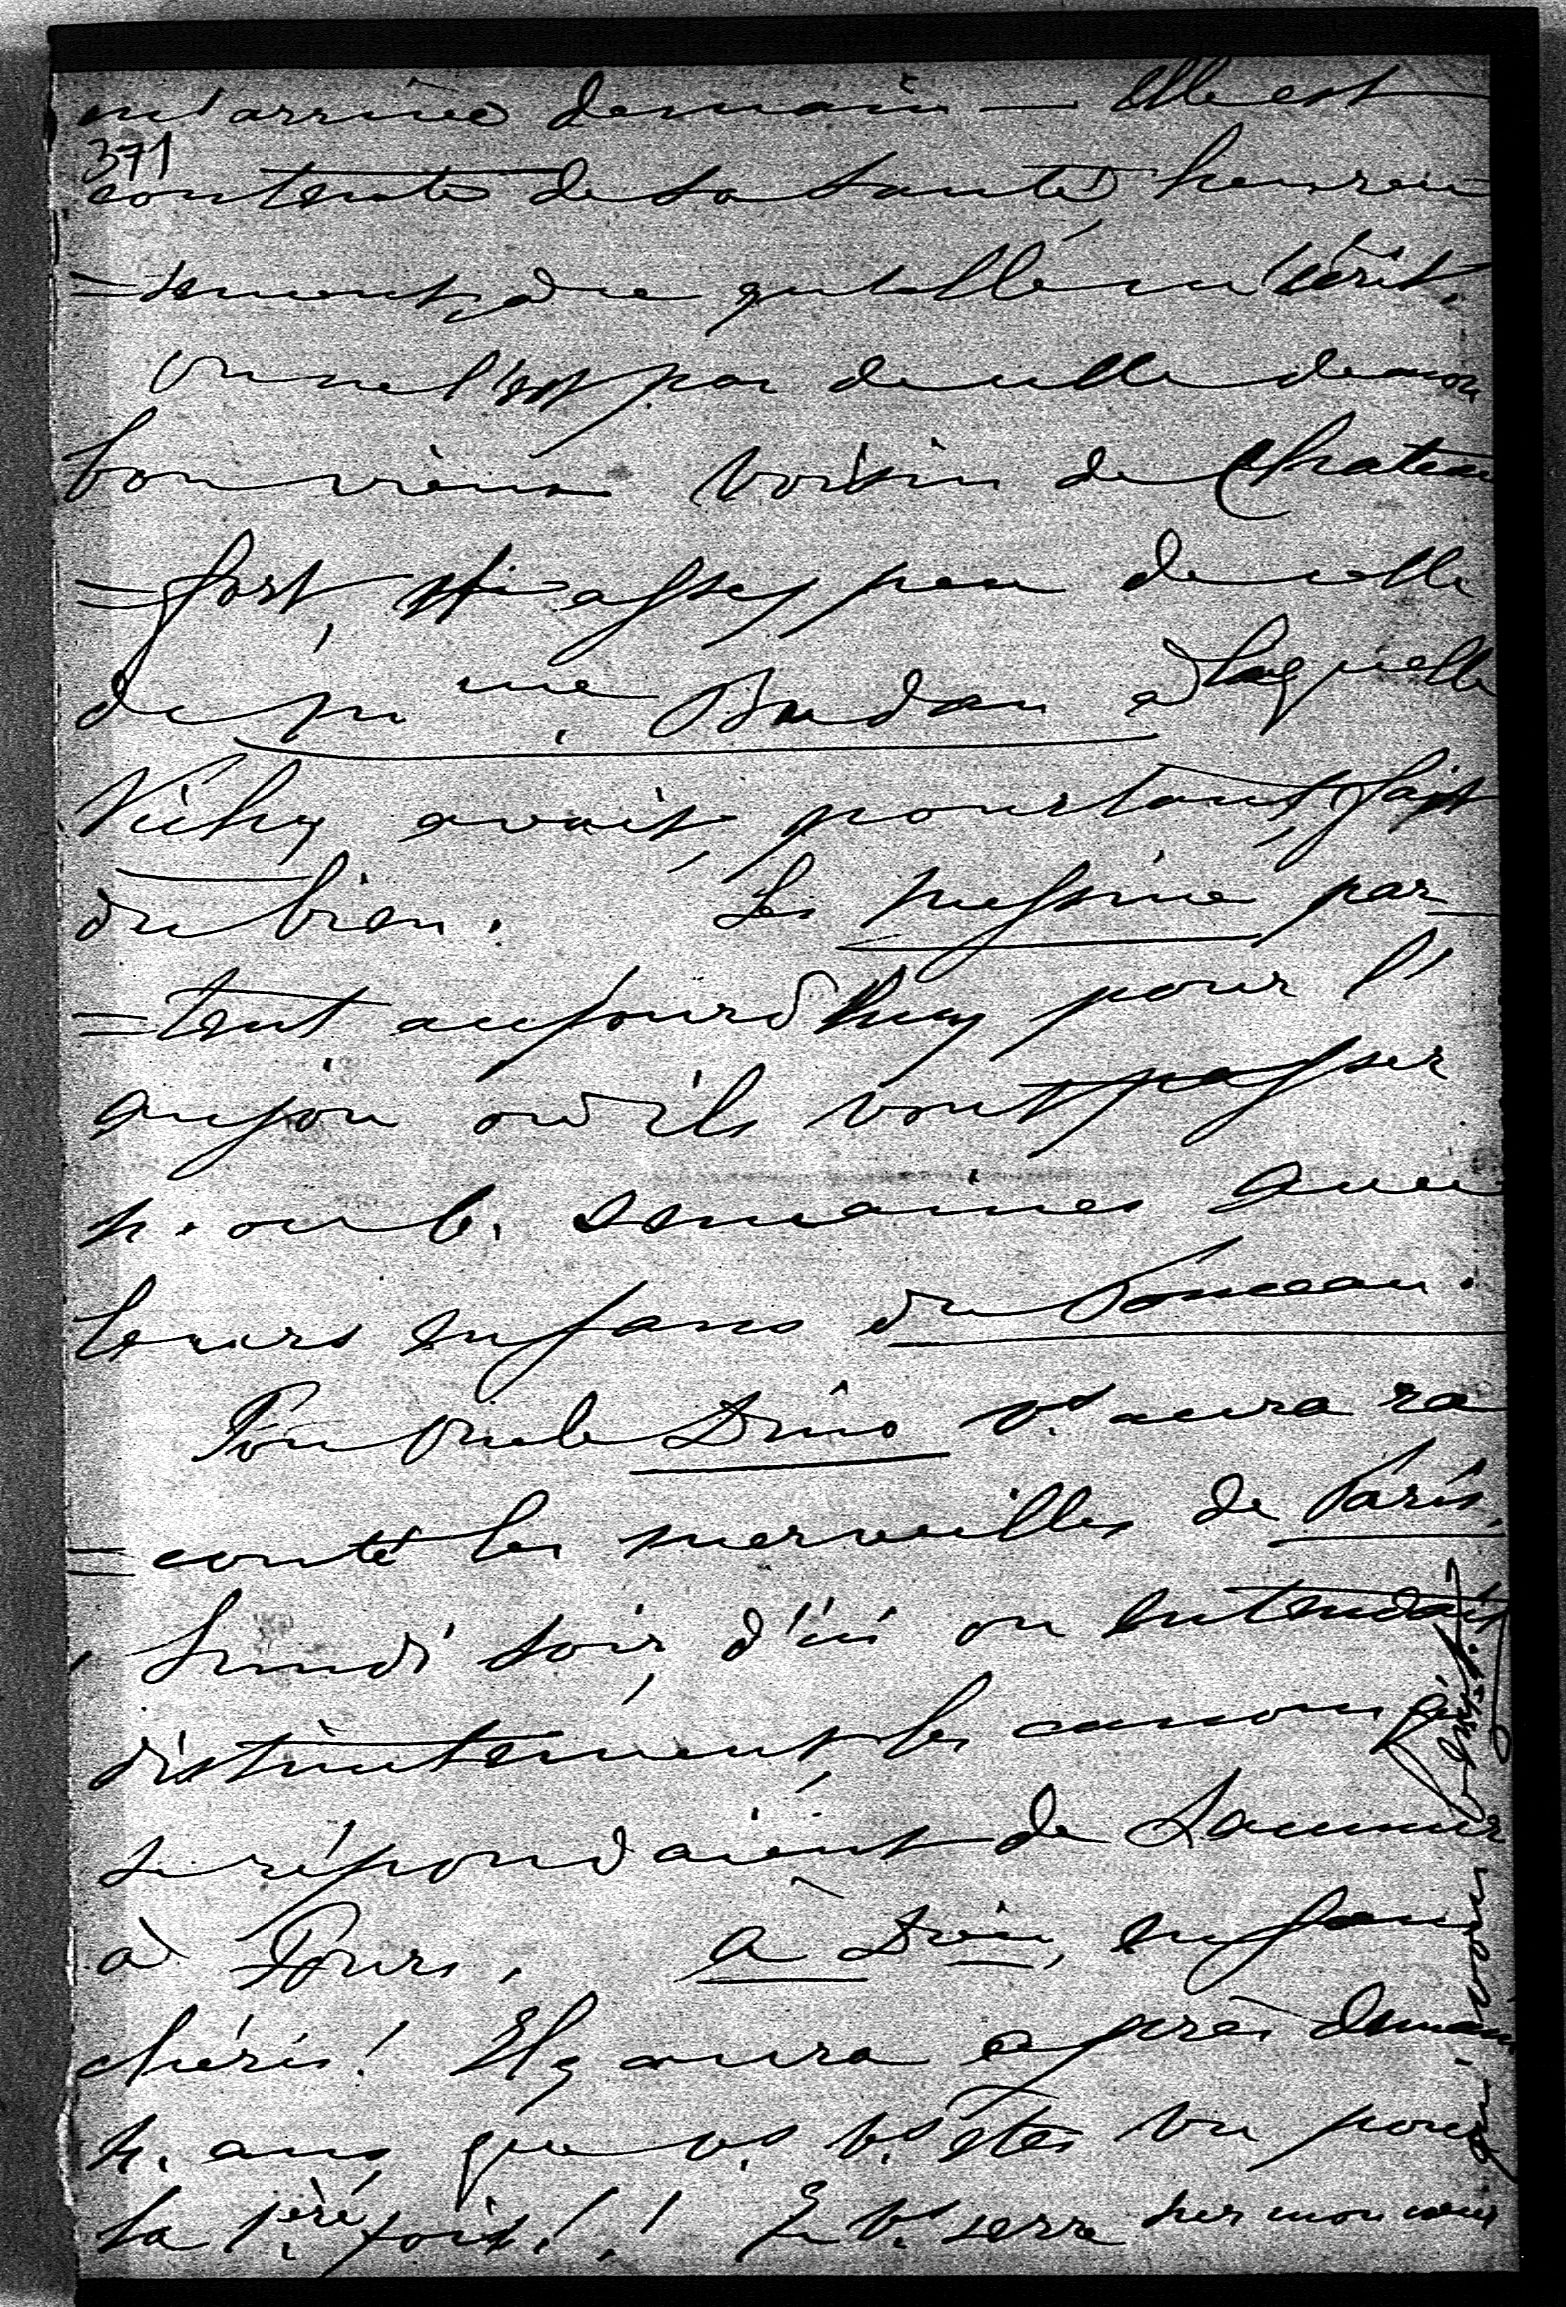 m'arrive demain — Elle est
371
contente de sa santé, heureu
=sement, à ce qu'elle m'écrit.
on ne l'est pas de celle de mon
bon vieux voisin de Chateau
=fort, assez peu de celle
de me. Budan à laquelle
Vichy avait, pourtant, fait
du bien. Les Messine par
=tent aujourd'huy pour l'
anjou où ils vont passer
ou 6. semaines avec
leurs enfans du Ponceau.
Dino vs. aura ra
=conté les merveilles de Paris.
Lundi soir, d'ici on entendait
distinctement, les canons qui
se répondaient de Saumur
à Tours. à Dieu, enfans
chéris! Il y aura après demain
4. ans, que vs. vs. êtes vu pour
la 1ère fois!.! Je vs. serre sur mon cœur